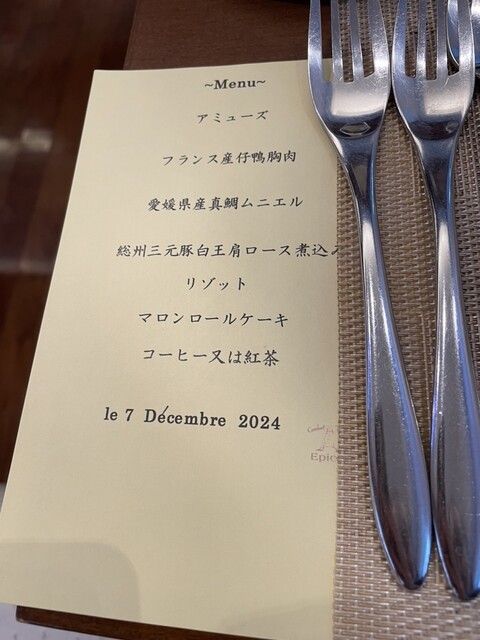 ~Menu~
アミューズ
フランス産仔鴨胸肉
愛媛県産真鯛ムニエル
総州三元豚白王肩ロース煮込み
リゾット
マロンロールケーキ
コーヒー又は紅茶
le 7 Décembre 2024
Epic